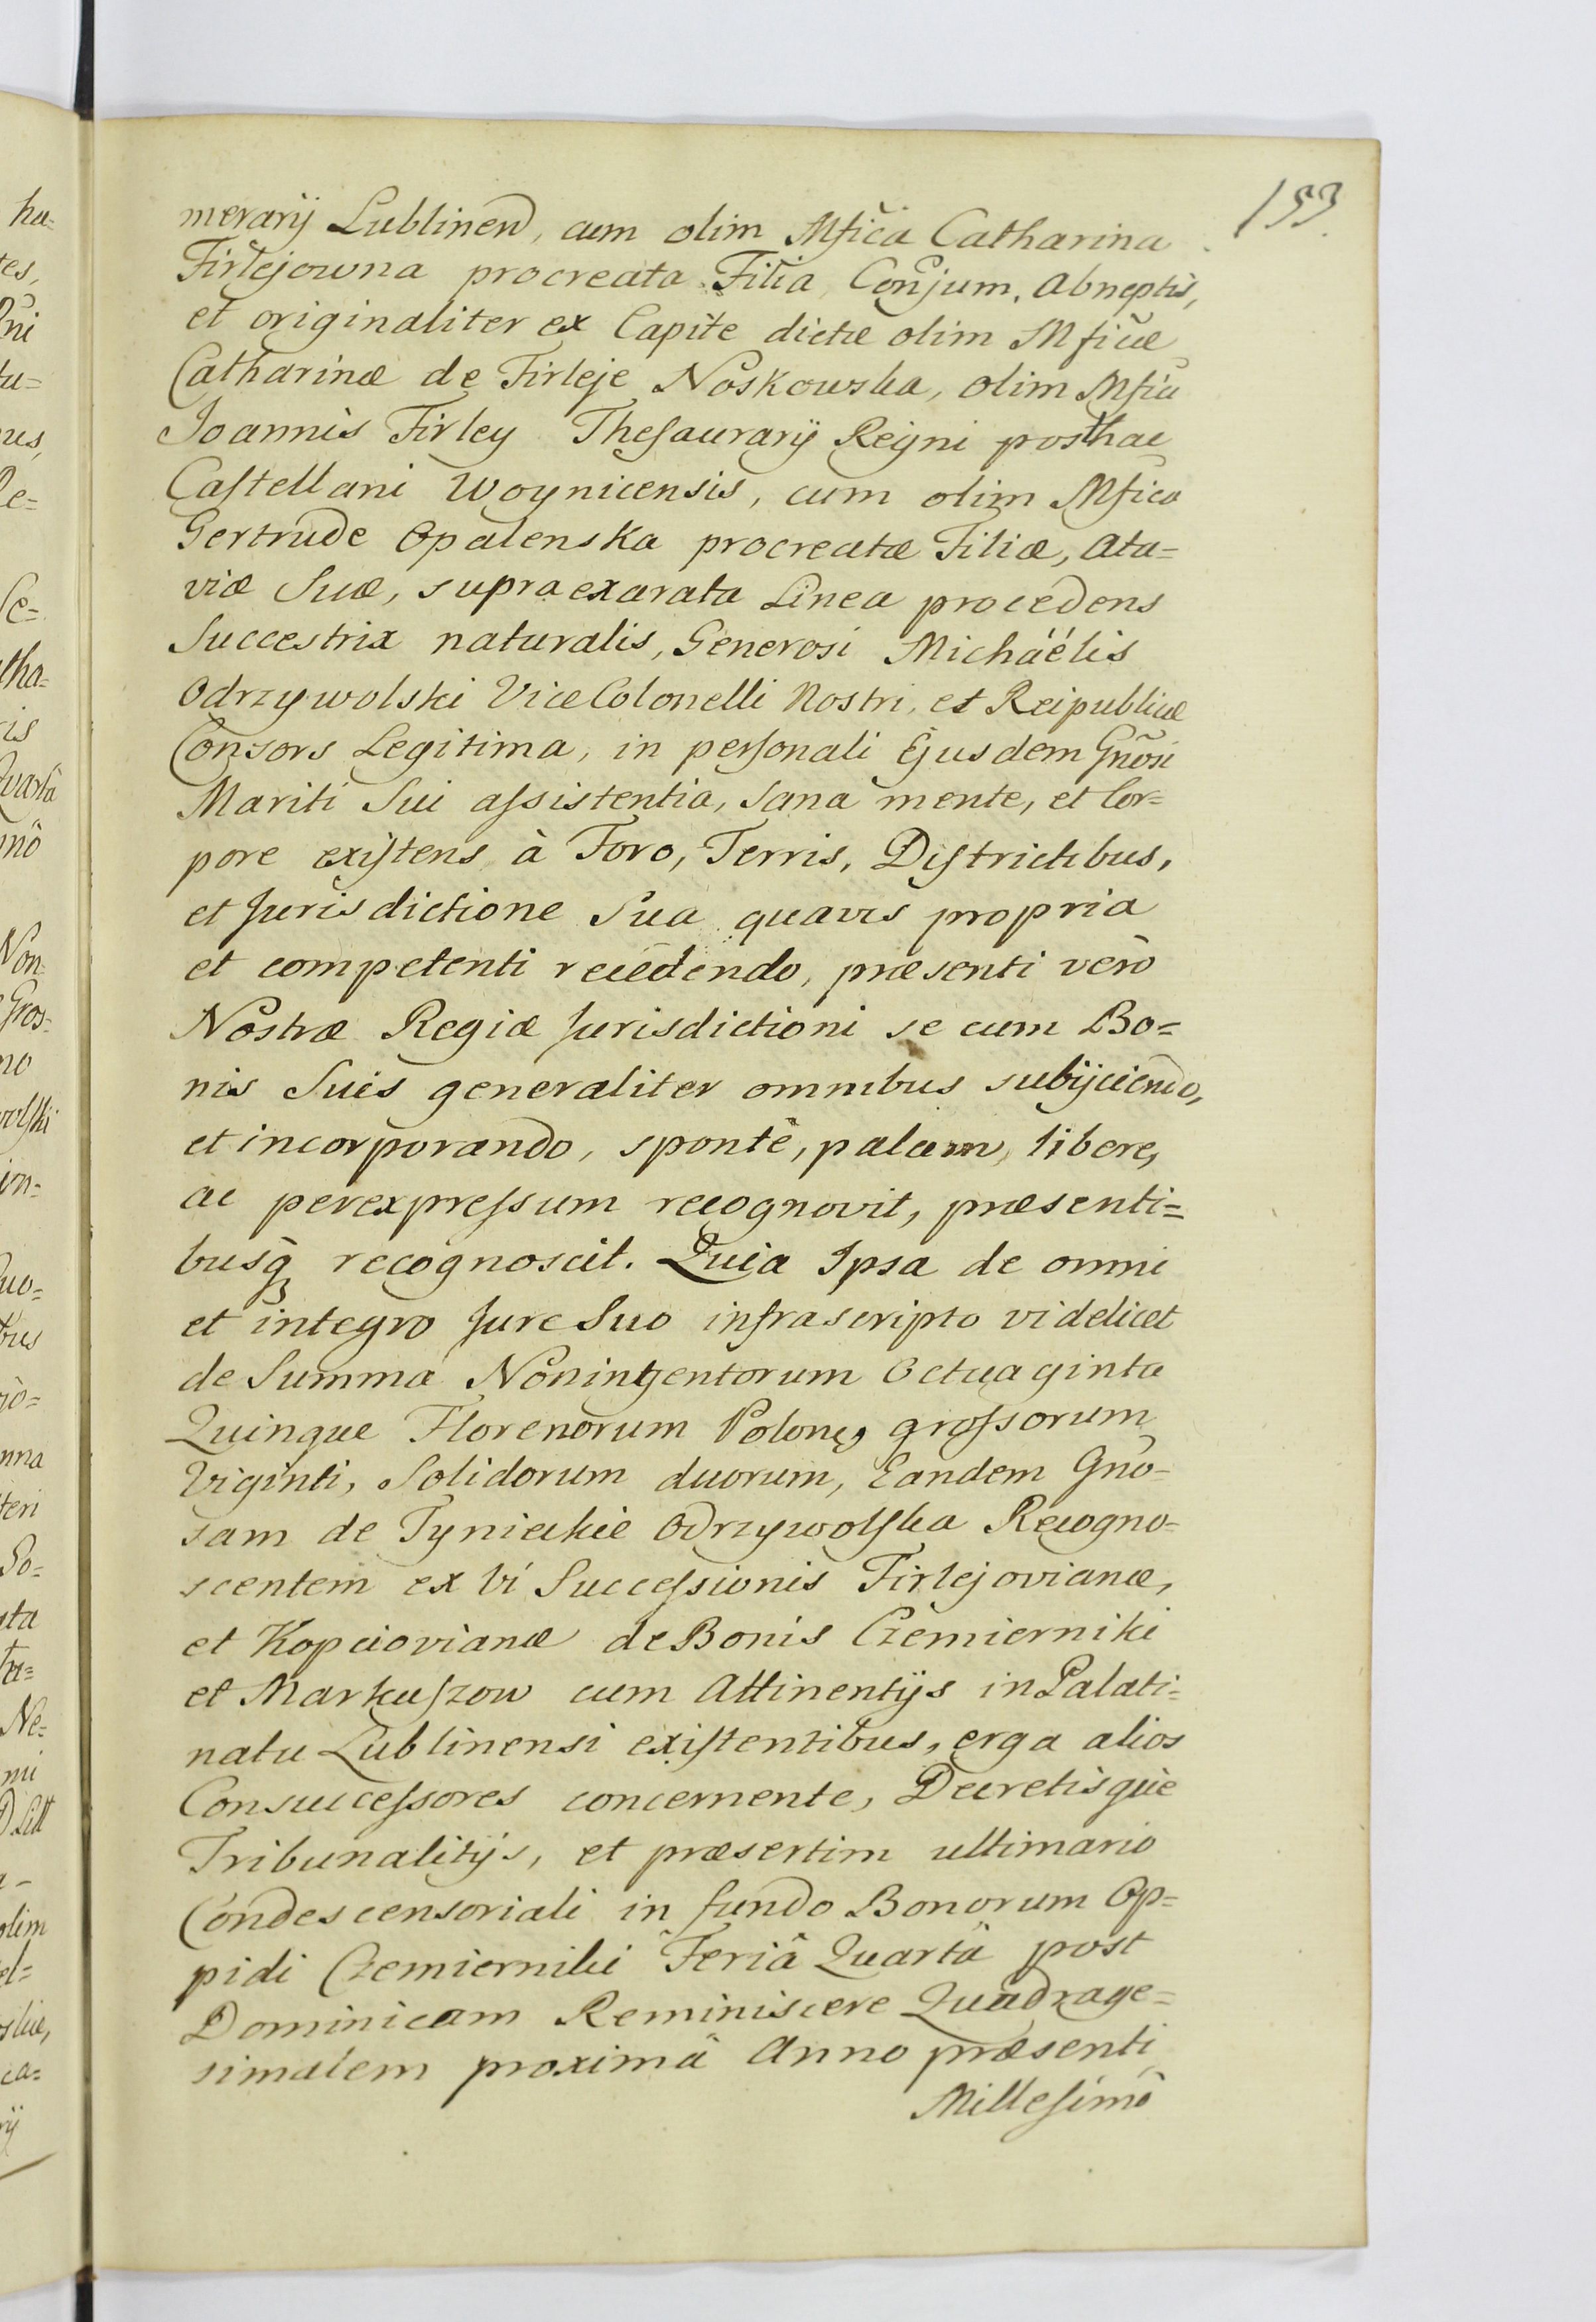 153.
merarÿ Lublinen, cum olim Mfica Catharina
Firlejowna procreata Filia, Conjum, Abneptis,
et originaliter ex Capite dictæ olim Mficæ
Catharinæ de Firleje Noskowska, olim Mfici
Joannis Firley Thesaurarÿ Regni posthac
Castellani Woynicensis, cum olim Mfica
Gertrude Opalenska procreatæ Filiæ, Ata=
viæ Suæ, supra exarata Linea procedens
Succestrix naturalis, Generosi Michaélis
Odrzywolski Vice Colonelli Nostri, et Reipublicæ
Consors Legitima, in personali Ejusdem Gnosi
Mariti Sui assistentia, sana mente, et Cor=
pore existens à Foro, Terris, Districtibus,
et Jurisdictione Sua quavis propria
et competenti recedendo, præsenti vero
Nostræ Regiæ Jurisdictioni se cum Bo=
nis Suis generaliter omnibus subÿciendo,
et incorporando, sponte, palam, libere,
ac perexpressum recognovit, præsenti=
busq recognoscit. Quia Ipsa de omni
et integro Jure Suo infrascripto videlicet
de Summa Noningentorum Octuaginta
Quinque Florenorum Polon, grossorum
Viginti, Solidorum duorum, Eandem Gno=
sam de Tynieckie Odrzywolska Recogno=
scentem ex Vi Successionis Firlejovianæ,
et Kopciovianæ de Bonis Czemierniki
et Markuszow cum Attinentÿs in Palati=
natu Lublinensi existentibus, erga alios
Consuccessores concernente, Decretisque
Tribunalitÿs, et præsertim ultimario
Condescensoriali in fundo Bonorum Op=
pidi Czemierniki Feriâ Quartâ post
Dominicam Reminiscere Quadrage=
simalem proximâ Anno præsenti
Millesimô